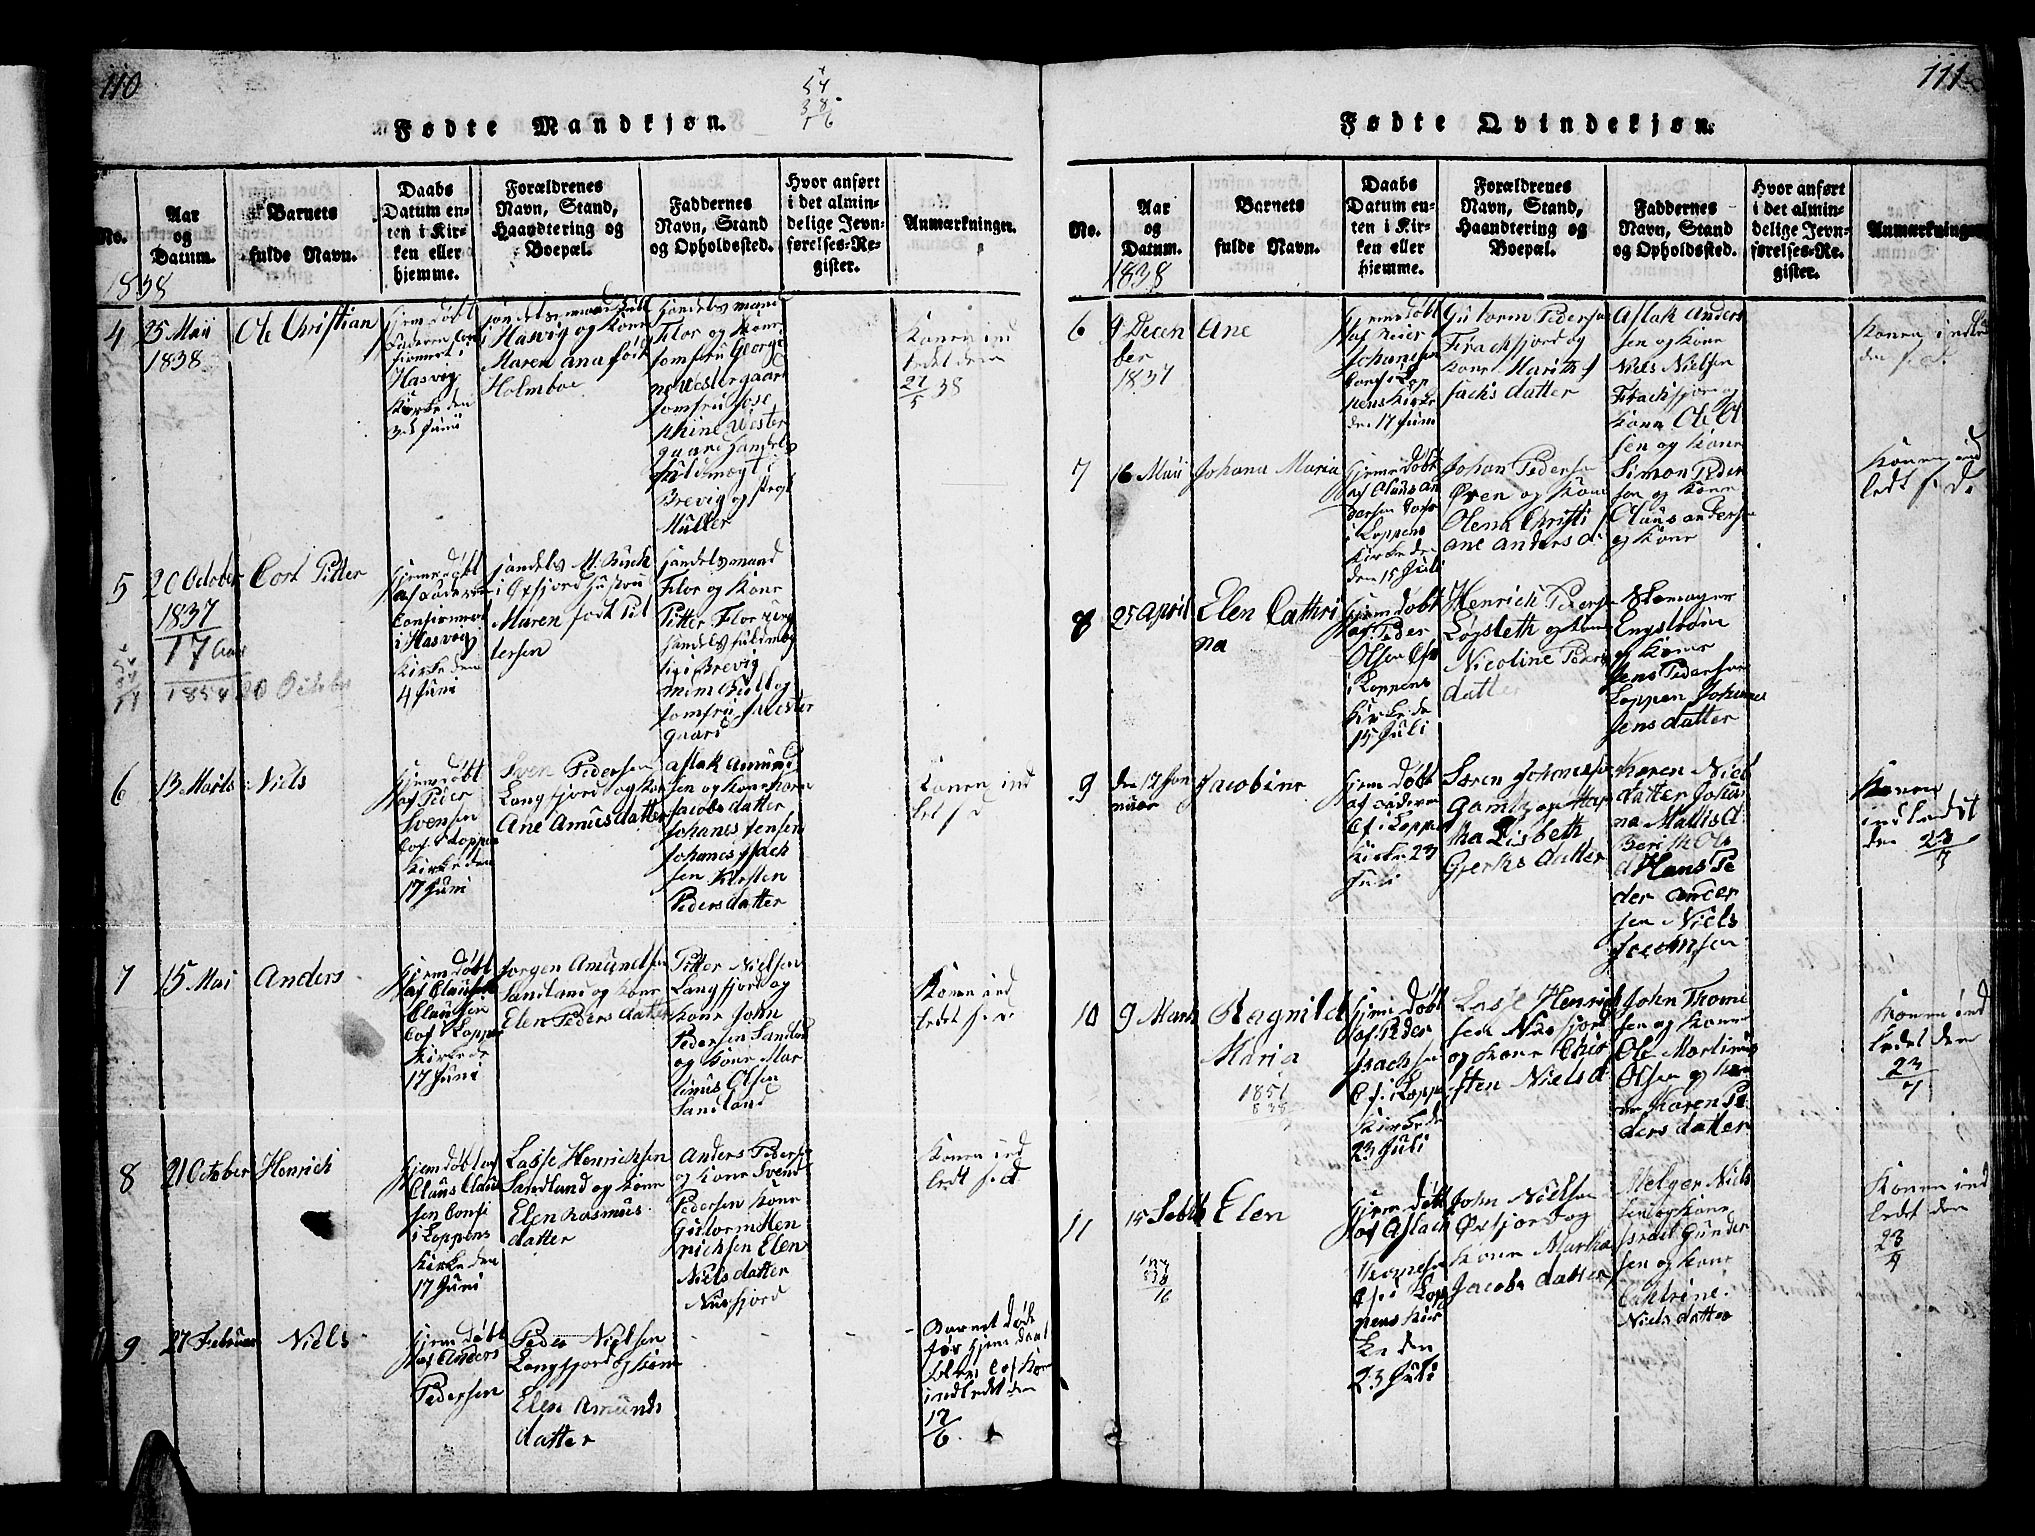 110
54
38
16
Fødte Mandkjøn.
No.
Aar
og
Datum.
Barnets
fulde Navn.
Daabs
Datum en-
ten i Kir-
ken eller
hjemme.
Forældrenes
Navn, Stand,
Haandtering og
Boepæl.
Faddernes
Navn, Stand
og Opholdssted.
Hvor anført
i det almin-
delige Jevn-
førelses-Re-
gister.
Anmærkninger.
1838
4
25 Maii
1838
Ole Christian
Hjemdøbt
Hasvig
Kirke den
3d Juni
Hasvig og Kone
Maren Ana født
Holmboe
Handelsmand
Flor og Kone
Jomfru Georgi
ne Westergaard
Jomfru Jose
phine Wester
gaard Handels
fuldmegt i
Brevig og
Müller
Konen ind
ledet den
27/5 38
5
20 October
1837
17 Aar
1854 20 Octobr
Cort Pitter
Hjemmedøbt
af Faderen
Confirmert
i Hasvog
Kirke den
4 Juni
Handels M. Buck
i Øxfjord Hustru
Maren født Pit
tersen
Handelsmand
Flor og Kone
Pitter Flor
Handelsfuldmeg
tig i Brevig
Jomfru J. Wester
gaard
6
13 Marts
Niels
Hjemdøbt
af Peder
Svensen
Cof. i Loppen
Kirke den
17 Juni
Sven Pedersen
Langfjord og Kone
Ane Amusdatter
Aslak Amund
sen og Kone Karn
Jacobsdatter
Johanes Jensen
Johanes Isach
sen Kirsten
Pedersdatter
Konen ind
let f d
7
15 Mai
Anders
Hjemdøbt
af Claus
Clausen
Cof i Loppen
Kirke de
17 Juni
Jorgen Amundsen
Sandland og Kone
Elen Pedersdatter
Pitter Nielsen
Langfjord og
Kone John
Pedersen Sandland
og Kone Mar
tinus Olsen
Sandland
Konen ind
ledet f. d.
8
21 October
Henrich
Hjemdøbt af
Claus Clau
sen Confi
i Loppens
Kirke den
17 Juni
Lasse Henrichsen
Sandland og Kone
Elen Rasmus
datter
Anders Peders
og Kone Svend
Pedersen Kone
Gutorm Hen
richsen Elen
Nielsdatter
Nusfjord
Konen ind
ledt f. d
9
27 Februar
Niels
Hjemdøbt
af Anders
Pedersen
Peder Nielsen
Langfjord og Kone
Elen Amunds
datter
Barnet døde
før Hjemdaab
Kone
indledet den
17/6
111
Fødte Qvindekjøn.
No.
Aar
og
Datum.
Barnets
fulde Navn.
Daabs
Datum en-
ten i Kir-
ken eller
hjemme.
Forældrenes
Navn, Stand,
Haandtering og
Boepæl.
Faddernes
Navn, Stand
og Opholdssted.
Hvor anført
i det almin-
delige Jevn-
førelses-Re-
gister.
Anmærkninger.
1838
6
4 Decem
ber
1837
Ane
Hjemmedøbt
af Reier
Johannesen
Conf i Lop
pens Kirke
den 17 Juni
Gutorm Pedersen
Frachfjord og
Kone Marith I
sachsdatter
Aslak Anders
sen og Kone
Niels Nielsen
Frachfjor og
Kone Ole Ol
sen og Kone
Konen indled
den f. d.
7
16 Maii
Johana Maria
Hjemedøbt
af Claus An
dersen Conf
i Loppens
Kirke den
den 15 Juli
Johan Pedersen
Øren og Kone
Olena Christi
ane Anders d.
Simon Peder
sen og Kone
Claus Andersen
og Kone
Konen ind
ledt f. d.
8
25 April
Elen Cathri
na
Hjemdøbt
af Peder
Olsen
i Loppens
Kirke de
15 Juli
Henrich Peders
Løgsleth og Kone
Nicoline Peders
datter
Skomager
Engstrøm
og Kone
Jens Pedersen
Loppen Johannes
Jensdatter
9
den 12 Jan
nuar
Jacobine
Hjemdøbt
af Anders
Cf i Loppen
Kirke 23
Juli
Søren Johannsen
Gamtz og Mar
tha Lisbeth
Gjertsdatter
Karen Niels
datter Johan
na Mattis d
Berith Ols
d Hans Pe
der Ander
sen Niels
Konen
indledet
den 23/7
10
9 Marts
Ragnild
Maria
1851
838
Hjemdøbt
af Peder
Isachsen
Cf. i Loppe
Kirke de
23 Juli
Lasse Henrich
sen Nusfjord
og Kone Chir
sten Niels d
John Thome
sen og Kone
Ole Martinus
Olsen og Kon
Karen Pe
dersdatter
Konen ind
ledet den
23/7
11
15 Febr
Elen
838
16
Hjemdøbt
af Aslach
Cf i Lop
pens Kir
ke den
23 Juli
John Nielsen
Øxfjord og
Kone Martha
Jacobsdatter
Helger Niels
sen og Kone
Israel Gunder
sen og Kone
Cathrine
Nielsdatter
Konen ind
ledet den
23/7